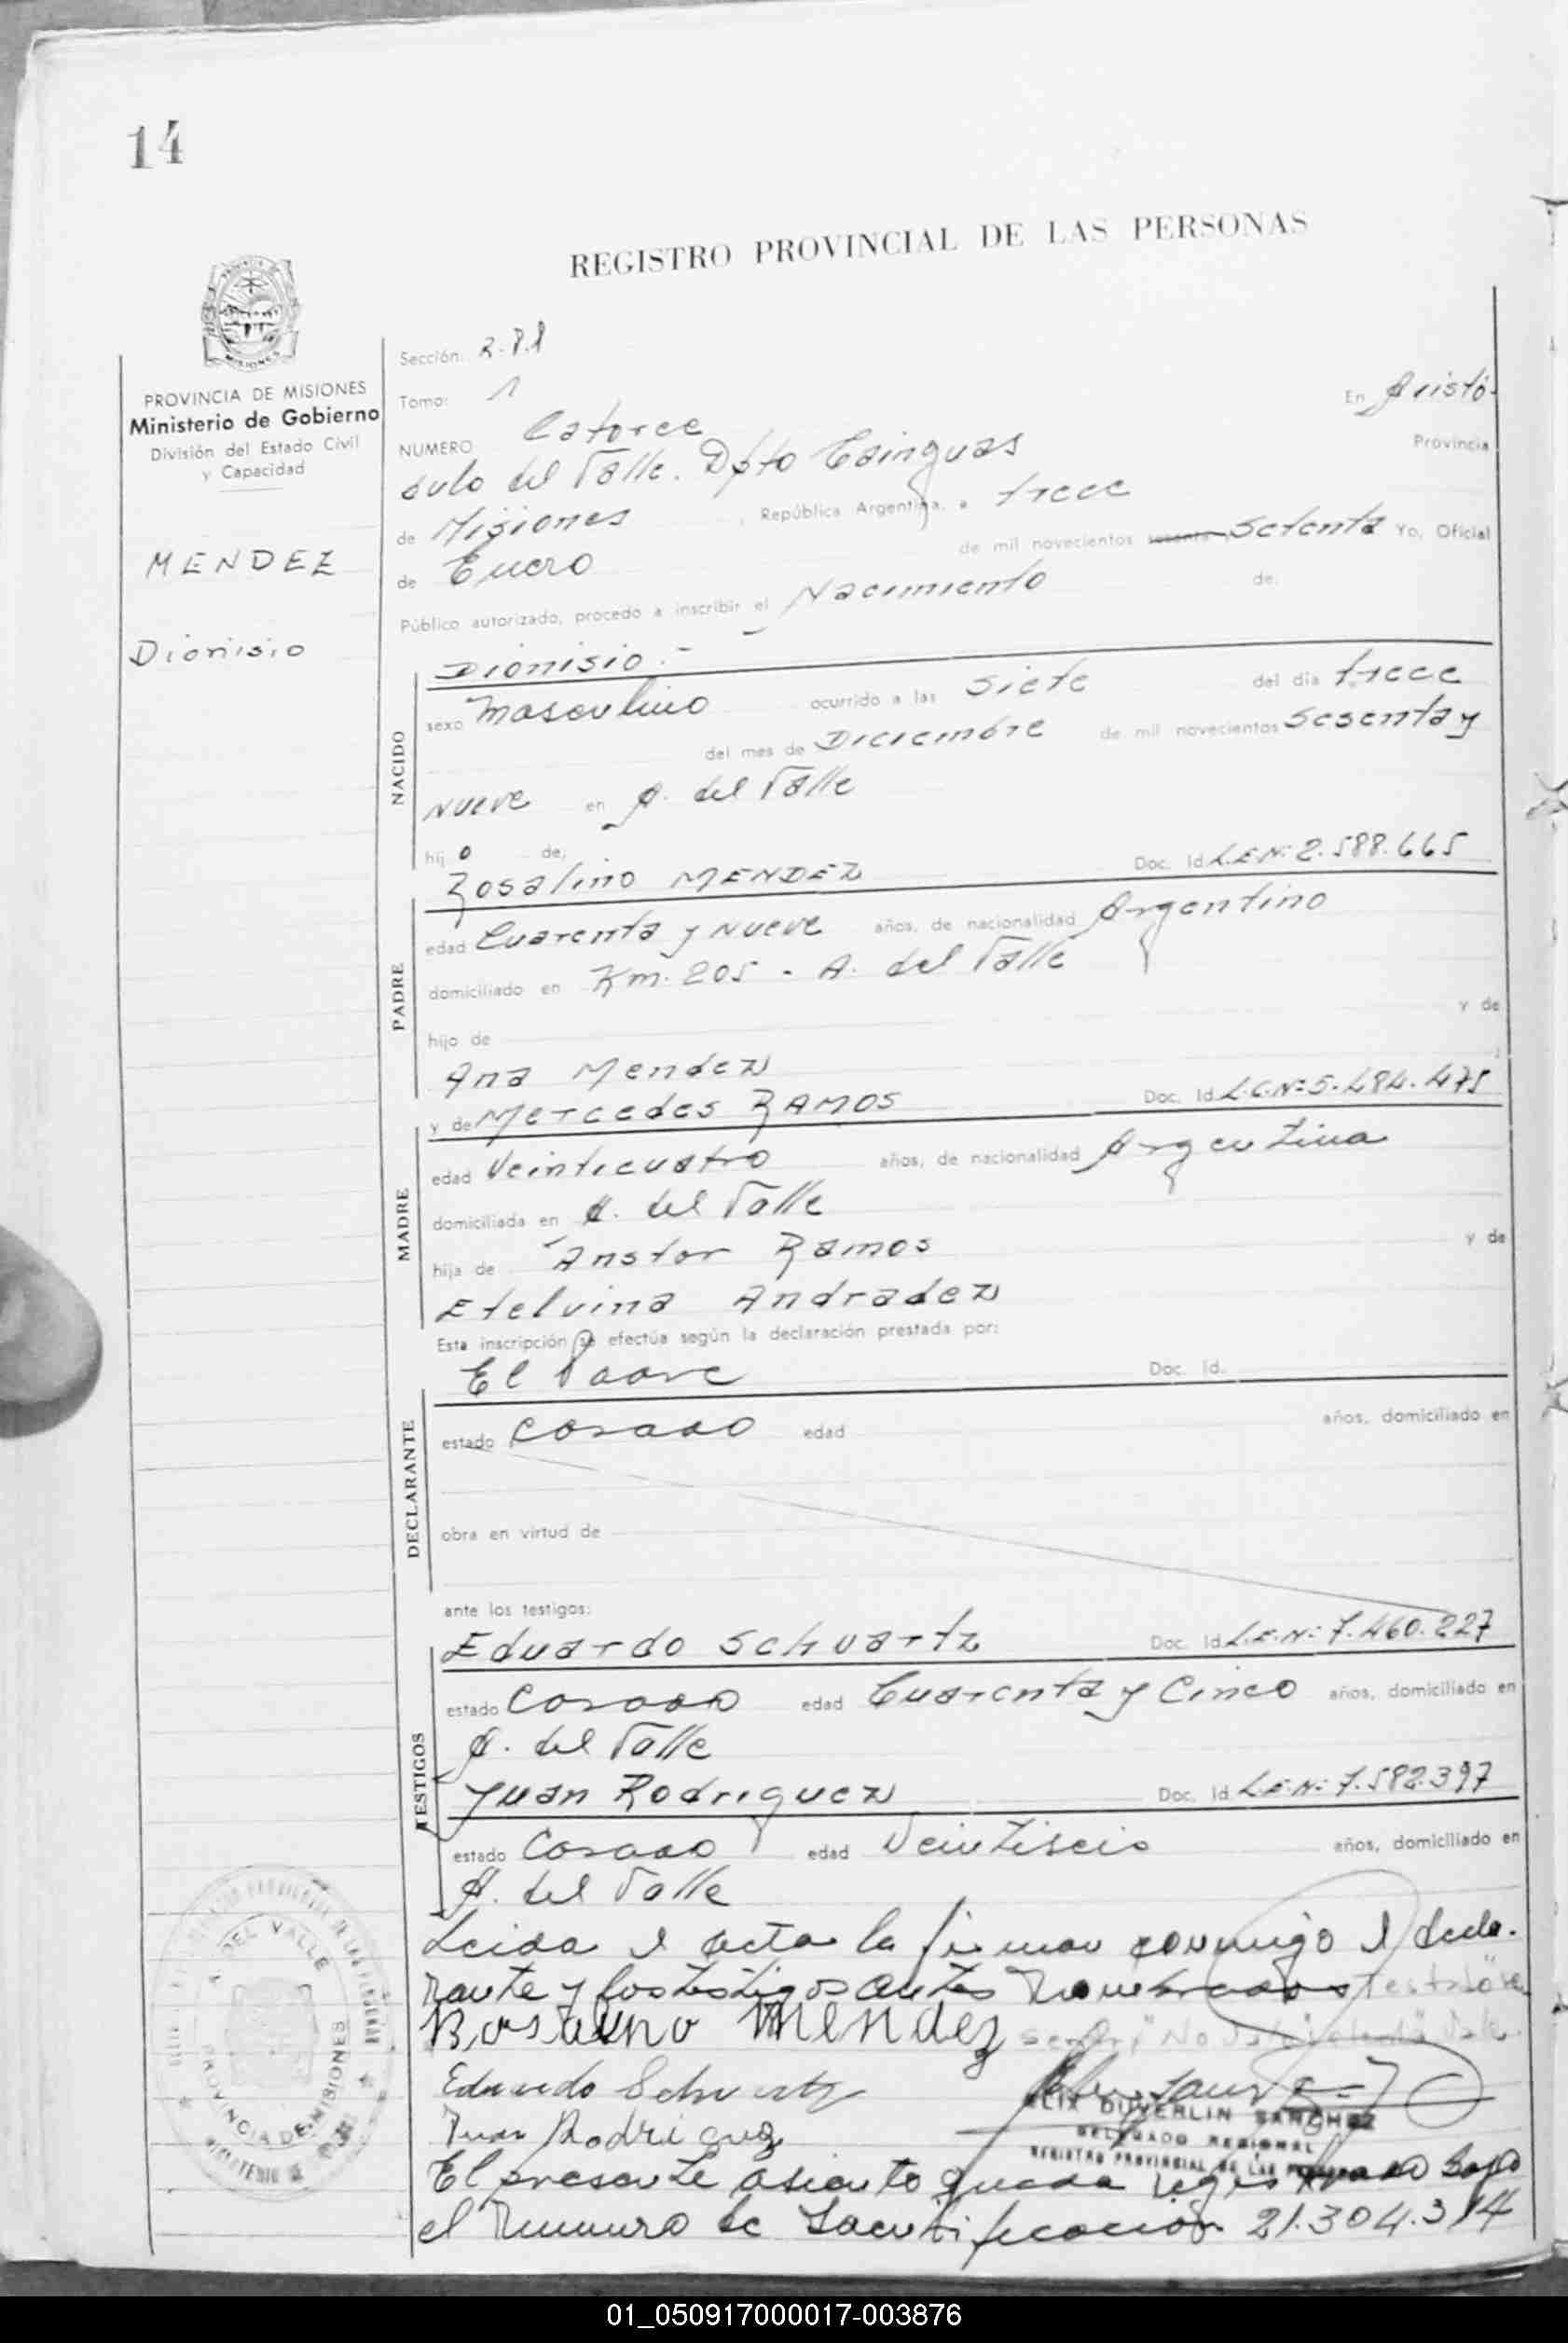 14
REGISTRO PROVINCIAL DE LAS PERSONAS
PROVINCIA DE MISIONES
Ministerio de Gobierno
División del Estado Civil
y Capacidad
MENDEZ
Dionisio
Sección:
Tomo: 1
NUMERO Catorce En Aristó-
bulo del Valle. Dpto Cainguas Provincia
de Misiones, República Argentina, a trece
de Enero de mil novecientos setenta Yo, Oficial
Público autorizado, procedo a inscribir el Nacimiento de:
Dionisio.-
NACIDO
sexo Masculino ocurrido a las siete del día trece
del mes de Diciembre de mil novecientos sesenta y
nueve en A. del Valle
hijo de:
Rosalino MENDEZ Doc. Id. L.E.Nº: 2.588.665
PADRE
edad Cuarenta y nueve años, de nacionalidad Argentino
domiciliado en Km. 205 - A. del Valle
hijo de y de
Ana Mendez
y de Mercedes RAMOS Doc. Id. L.C.Nº: 5.484.475
MADRE
edad Veinticuatro años, de nacionalidad Argentina
domiciliada en A. del Valle
hija de Anstor Ramos y de
Etelvina Andradez
Esta inscripción se efectúa según la declaración prestada por:
El Padre Doc. Id.
DECLARANTE
estado Casado edad años, domiciliado en
obra en virtud de
ante los testigos:
Eduardo Schvartz Doc. Id. L.E.Nº: 7.460.227
TESTIGOS
estado Casado edad Cuarenta y Cinco años, domiciliado en
A. del Valle
Juan Rodriguez Doc. Id. L.E.Nº: 7.582.397
estado Casado edad Veintiseis años, domiciliado en
A. del Valle
Leida el acta la firman conmigo el decla-
rante y los testigos antes nombrados Testado
Rosalino Mendez
Eduardo Schvartz
Juan Rodriguez
FELIX DUVERLIN SANCHEZ
DELEGADO REGIONAL
REGISTRO PROVINCIAL DE LAS PERSONAS
A. DEL VALLE
PROVINCIA DE MISIONES
El presente asiento queda registrado bajo
el numero de Identificación 21.304.314
01_050917000017-003876